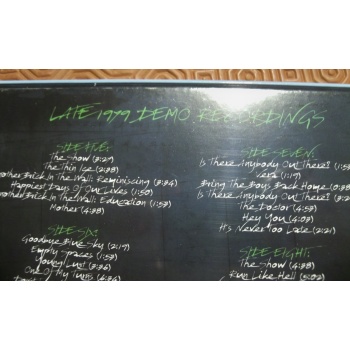 LATE 1979 DEMO RECORDINGS
SIDE FIVE:
The Show (3:29)
The Thin Ice
Another Brick In The Wall: Reminiscing (3:34)
Happiest Days Of Our Lives (1:50)
Another Brick In The Wall: Education (1:53)
Mother (4:38)
SIDE SIX:
Goodbye Blue Sky (2:19)
Empty Spaces
Young Lust
One Of My Turns
SIDE SEVEN:
Is There Anybody Out There?
Vera (1:19)
Bring The Boys Back Home
Is There Anybody Out There?
The Doctor
Hey You
It's Never Too Late (2:21)
SIDE EIGHT:
The Show
Run Like Hell